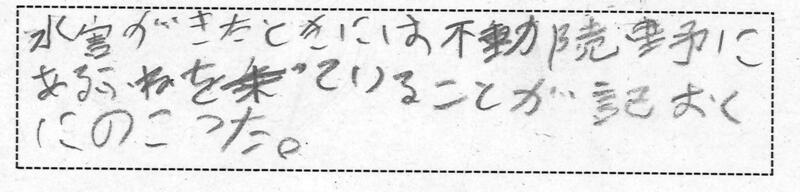 水害がきたときには不動院野に
あるふねを乗っていることが記おく
にのこった。